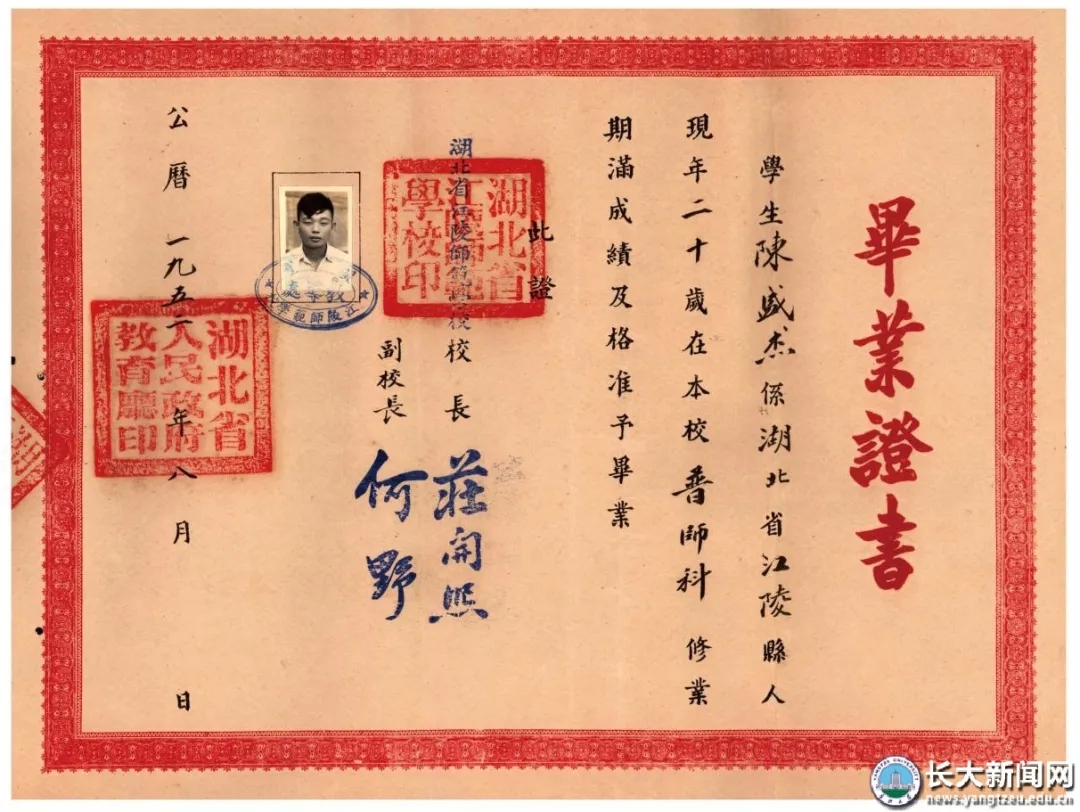 畢業證書
學生陳盛杰係湖北省江陵縣人
現年二十歲在本校普師科修業
期滿成績及格准予畢業
此證
湖北省江陵師範學校校長 莊開照
副校長 何野
湖北省江陵師範學校印
江陵師範學
公曆一九五 年八月 日
湖北省人民政府教育廳印
长大新闻网
news.yangtzeu.edu.cn